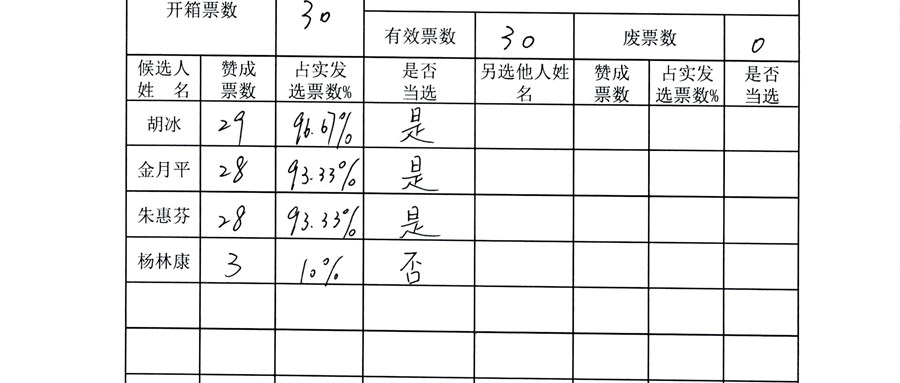 开箱票数 30
有效票数 30 废票数 0
候选人姓 名 赞成票数 占实发选票数% 是否当选 另选他人姓名 赞成票数 占实发选票数% 是否当选
胡冰 29 96.67% 是
金月平 28 93.33% 是
朱惠芬 28 93.33% 是
杨林康 3 10% 否